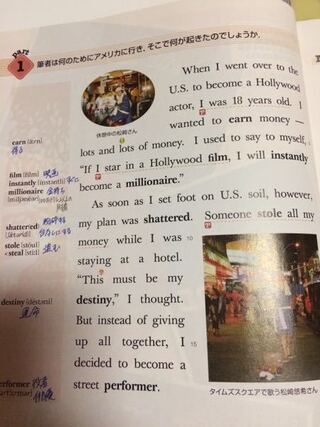 Part
1
筆者は何のためにアメリカに行き，そこで何が起きたのでしょうか。
When I went over to the
U.S. to become a Hollywood
actor, I was 18 years old. I
wanted to earn money —
lots and lots of money. I used to say to myself,
"If I star in a Hollywood film, I will instantly
become a millionaire."
As soon as I set foot on U.S. soil, however,
my plan was shattered. Someone stole all my
money while I was
10
staying at a hotel.
"This must be my
destiny," I thought.
But instead of giving
up all together, I
15
decided to become a
street performer.
休憩中の松崎さん
earn [ə́ːrn]
得る
film [fílm] 映画
instantly [ínstəntli]
millionaire 金持ち
shattered
stole [stóul]
< steal [stíːl] 盗む
destiny [déstəni]
運命
performer 役者
タイムズスクエアで歌う松崎悠希さん